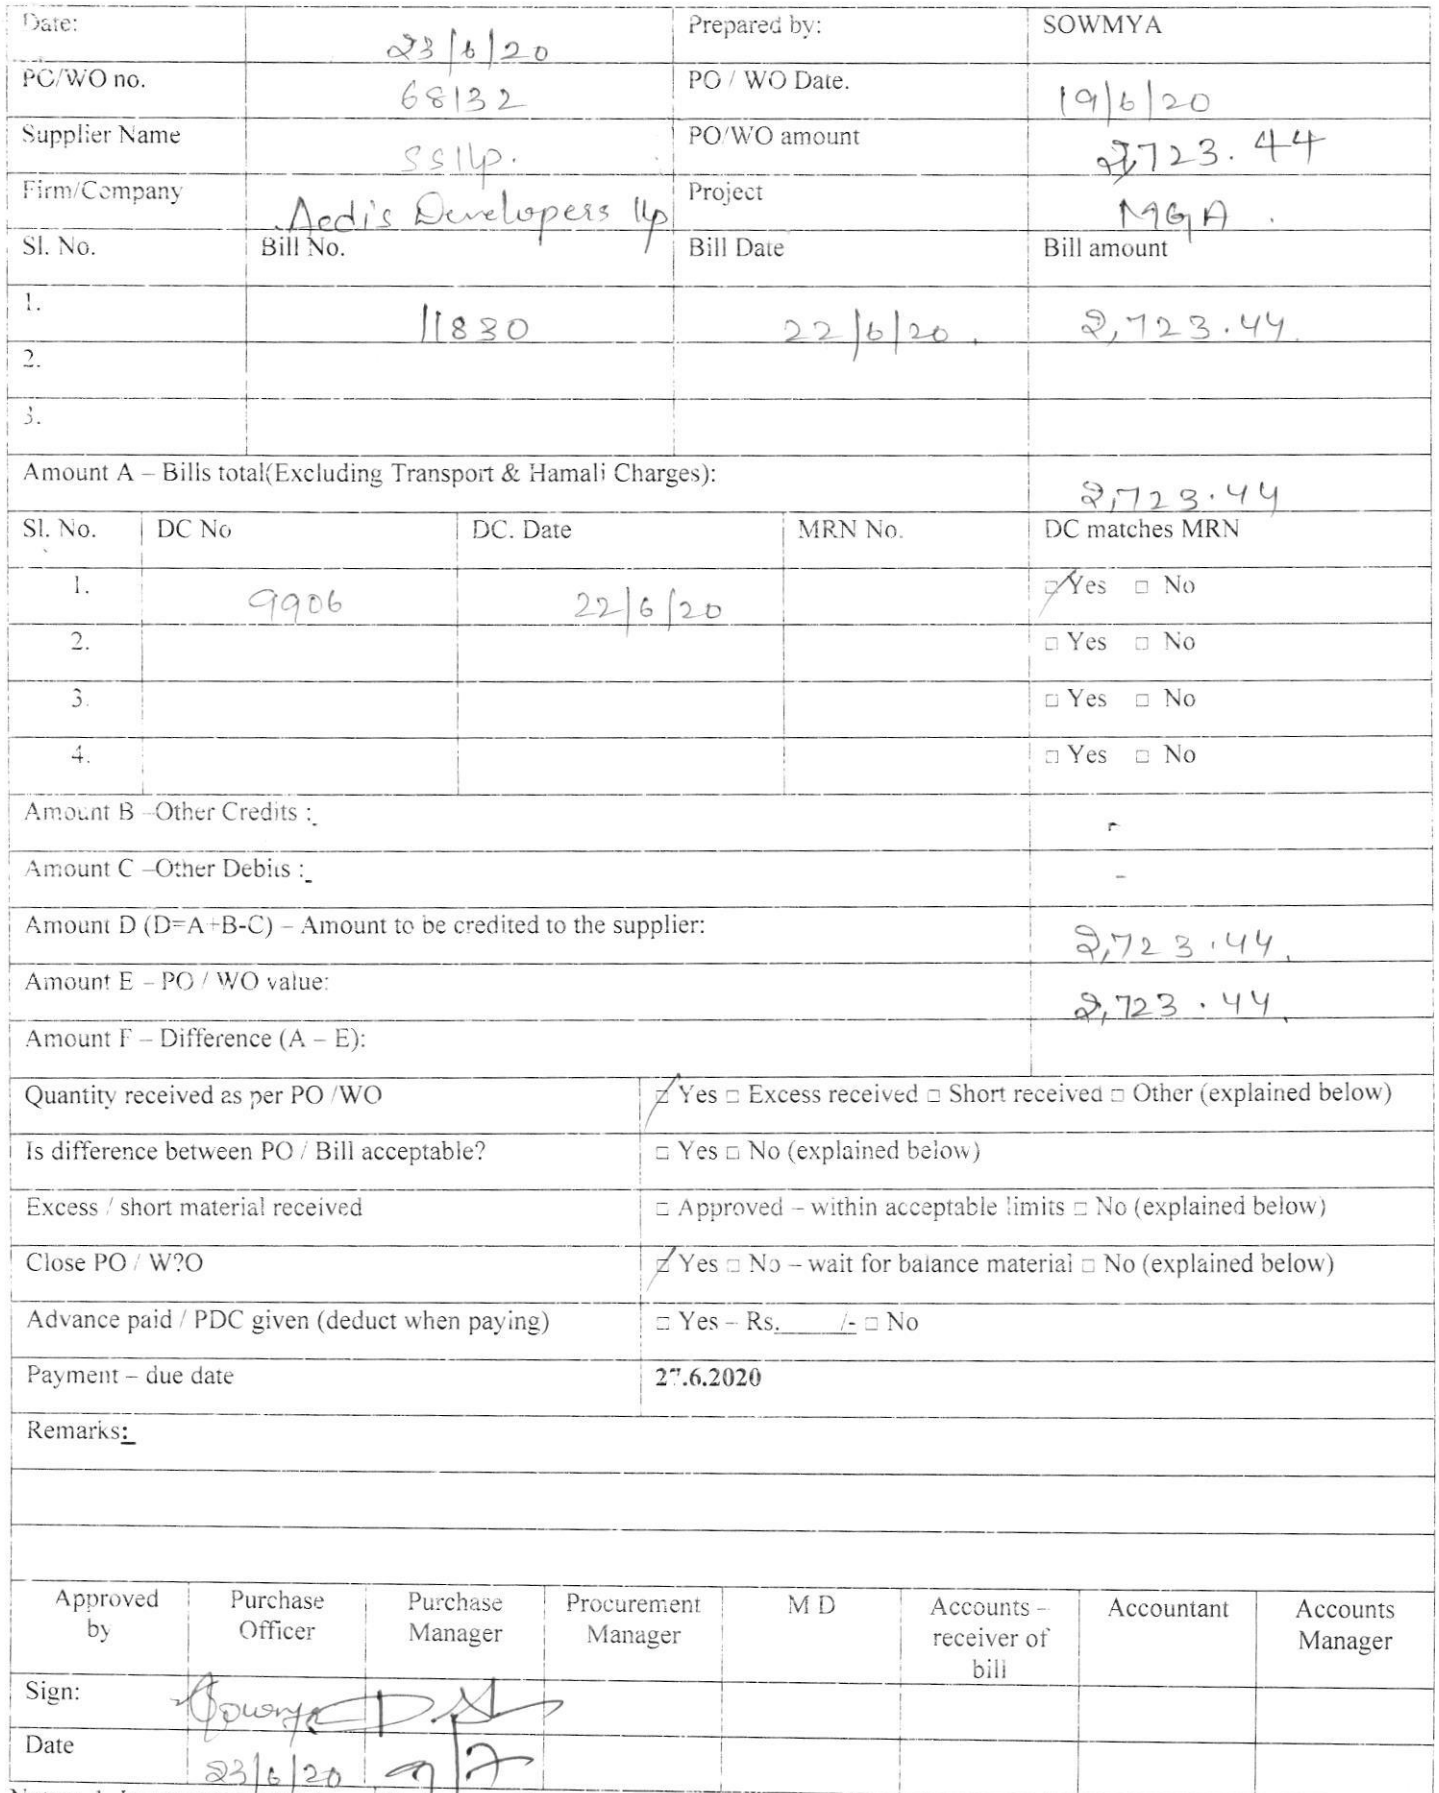 Date: 23/6/20 Prepared by: SOWMYA
PO/WO no. 68132 PO / WO Date. 19/6/20
Supplier Name SSllp. PO/WO amount 2,723.44
Firm/Company Aedis Developers llp Project MGA .
Sl. No. Bill No. Bill Date Bill amount
1. 11830 22/6/20. 2,723.44.
2.
3.
Amount A – Bills total(Excluding Transport & Hamali Charges): 2,723.44
Sl. No. DC No DC. Date MRN No. DC matches MRN
1. 9906 22/6/20 ☑ Yes □ No
2. □ Yes □ No
3. □ Yes □ No
4. □ Yes □ No
Amount B –Other Credits : -
Amount C –Other Debits : -
Amount D (D=A+B-C) – Amount to be credited to the supplier: 2,723.44.
Amount E – PO / WO value: 2,723.44.
Amount F – Difference (A – E):
Quantity received as per PO /WO ☑ Yes □ Excess received □ Short received □ Other (explained below)
Is difference between PO / Bill acceptable? □ Yes □ No (explained below)
Excess / short material received □ Approved – within acceptable limits □ No (explained below)
Close PO / W?O ☑ Yes □ No – wait for balance material □ No (explained below)
Advance paid / PDC given (deduct when paying) □ Yes – Rs.____/- □ No
Payment – due date 27.6.2020
Remarks:
Approved by Purchase Officer Purchase Manager Procurement Manager M D Accounts – receiver of bill Accountant Accounts Manager
Sign: Sowmya
Date 23/6/20 9/7